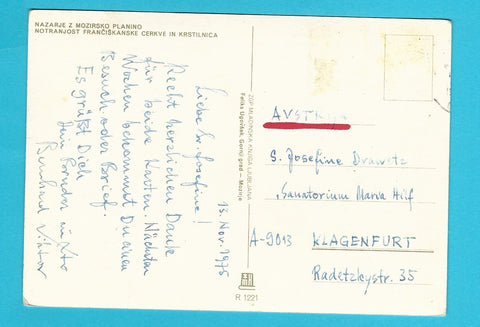 NAZARJE Z MOZIRSKO PLANINO
NOTRANJOST FRANČIŠKANSKE CERKVE IN KRSTILNICA
13. Nov. 1975
Liebe Sr. Josefine!
Recht herzlichen Dank
für beide Karten. Nächsten
Wochen bekommst Du einen
Besuch oder Brief.
Es grüßt Dich
Dein Bruder in
ZGP MLADINSKA KNJIGA LJUBLJANA
Feliks Ugovšek, Gornji grad – Mozirje
R 1221
AVSTRIJA
S. Josefine Drawetz
Sanatorium Maria Hilf
A-9013 KLAGENFURT
Radetzkystr. 35